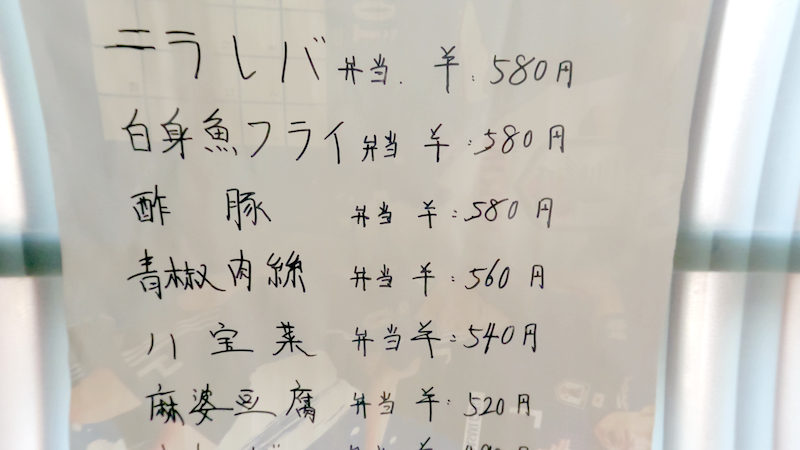 ニラレバ弁当. ¥:580円
白身魚フライ弁当 ¥:580円
酢豚 弁当 ¥:580円
青椒肉絲 弁当 ¥:560円
川宝菜 弁当 ¥:540円
麻婆豆腐 弁当 ¥:520円